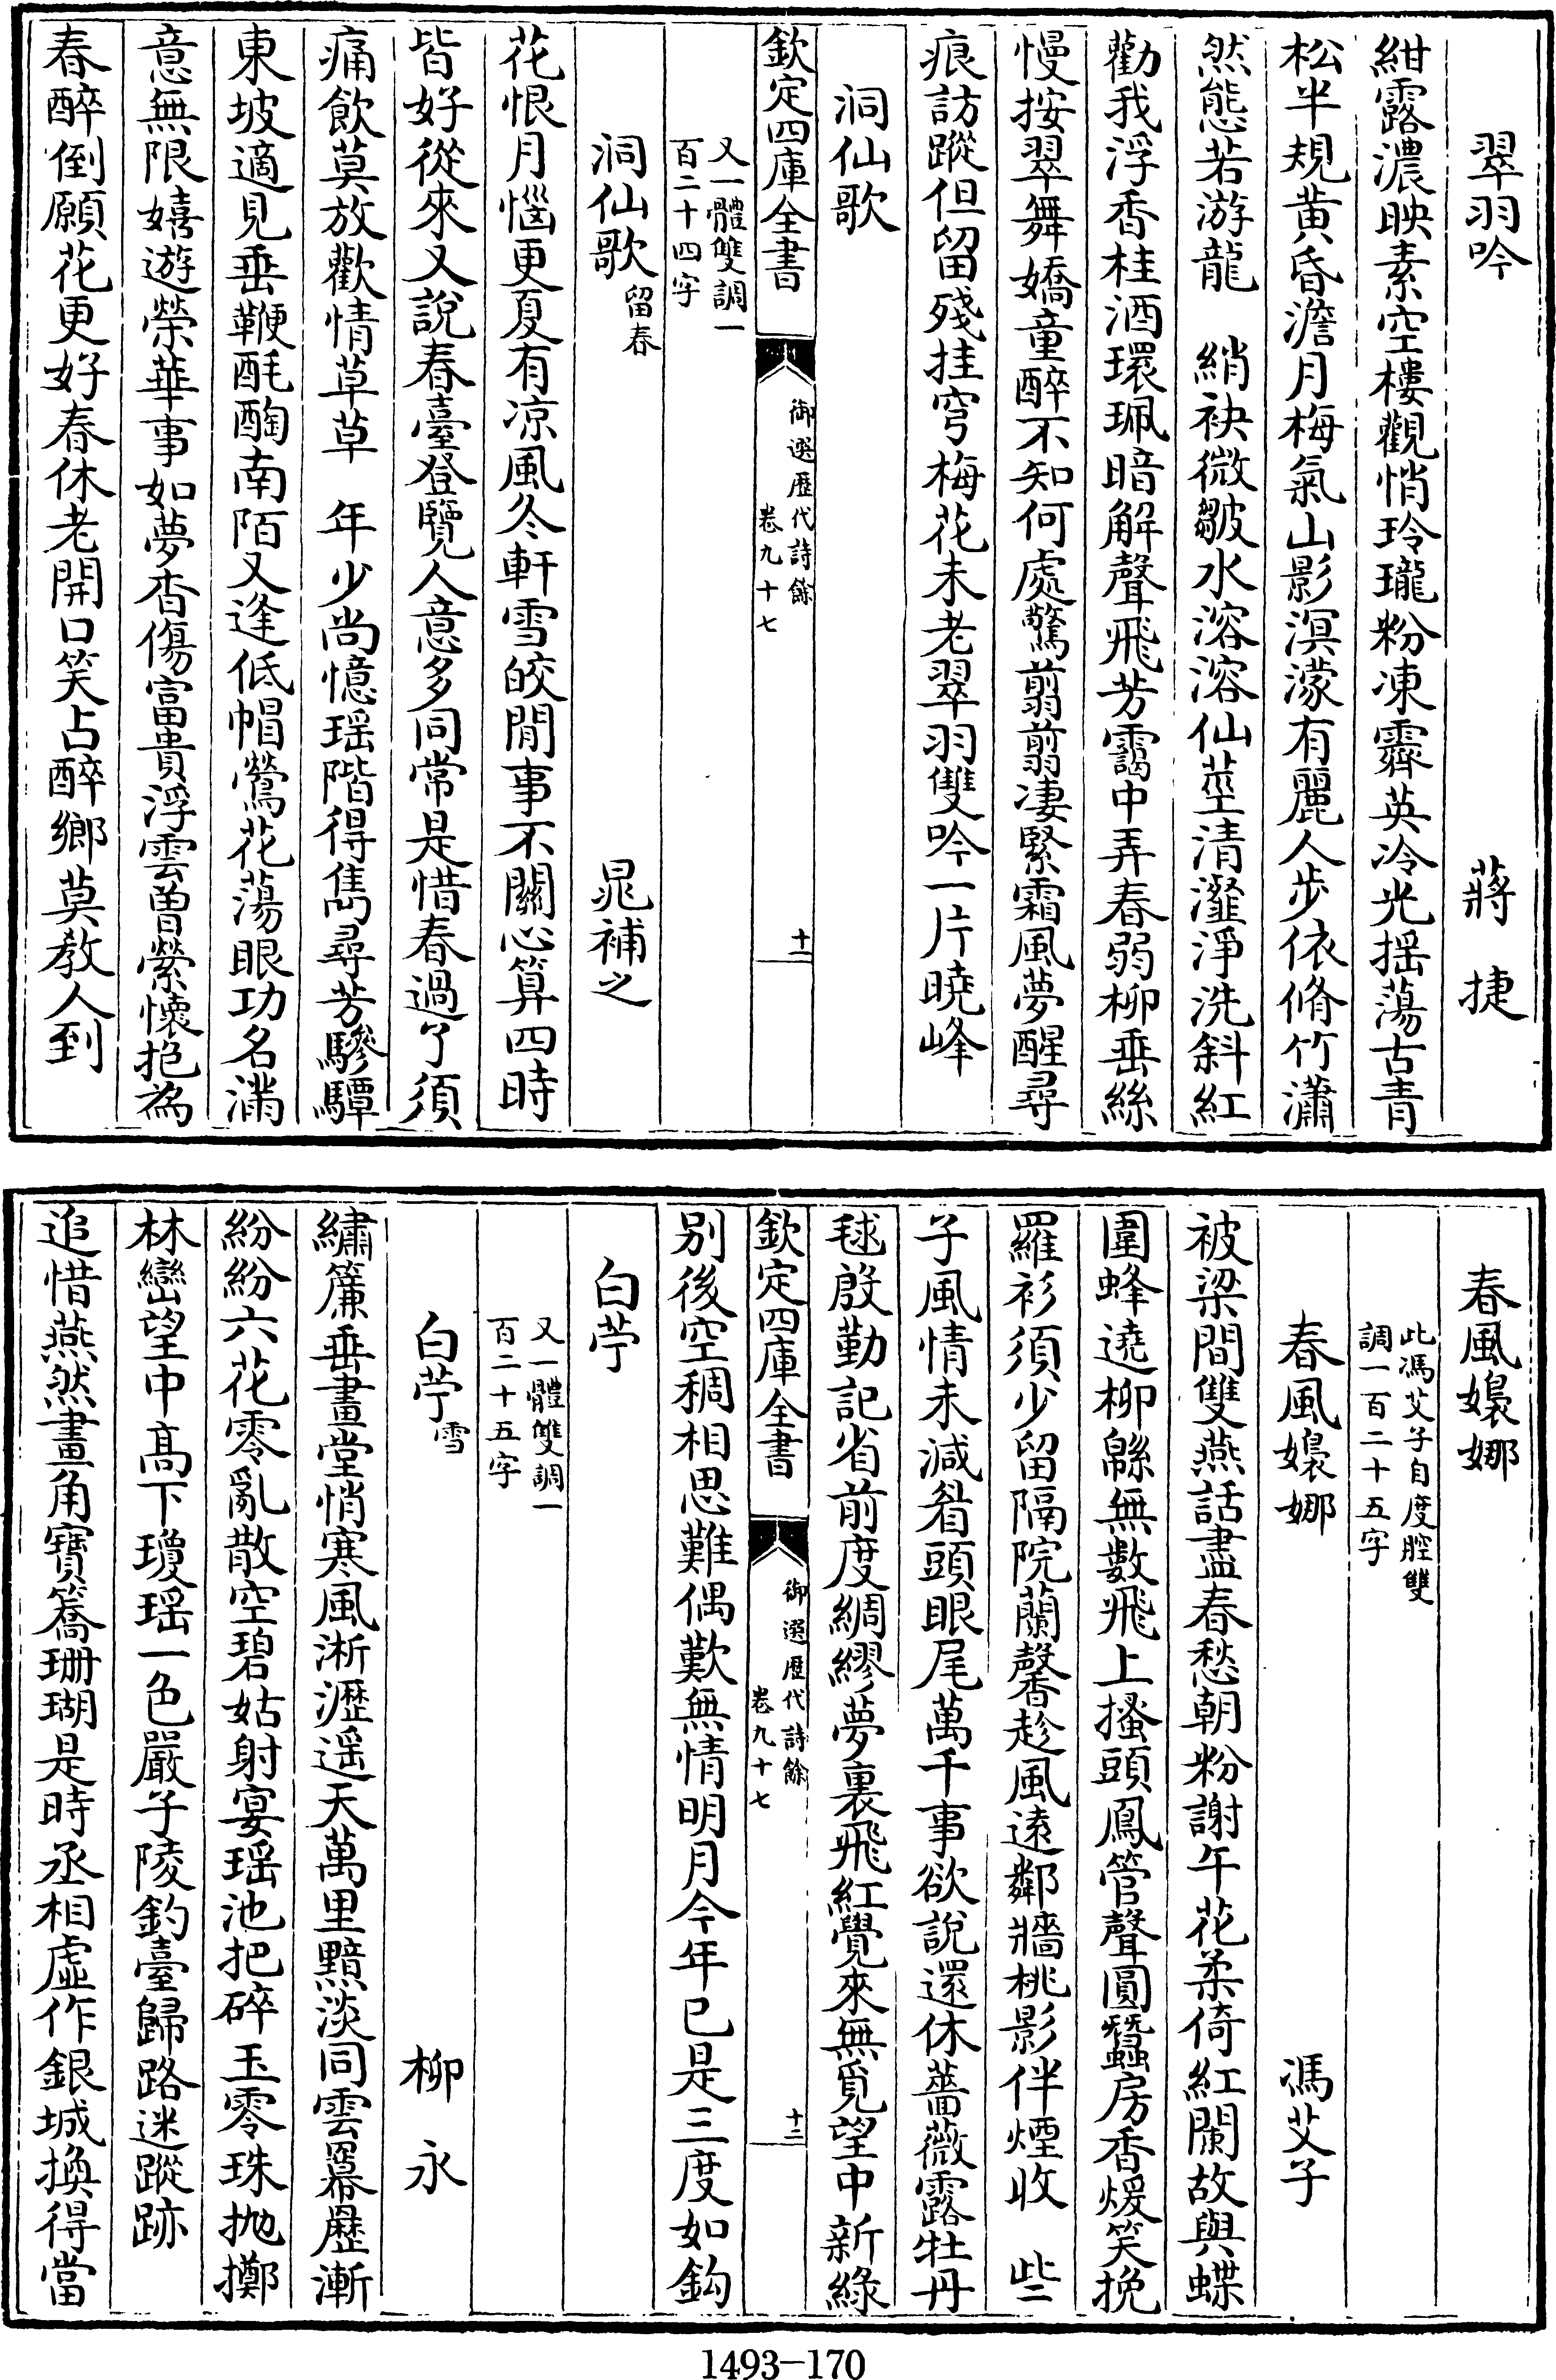 翠羽吟　蔣捷
紺露濃映素空樓觀悄玲瓏粉凍霽英冷光揺蕩古青
松半規黄昏澹月梅氣山影溟濛有麗人步依脩竹瀟
然態若游龍　綃袂微皺水溶溶仙莖清瀣淨洗斜紅
勸我浮香桂酒環珮暗解聲飛芳靄中弄春弱柳垂絲
慢按翠舞嬌童醉不知何處驚翦翦凄緊霜風夢醒尋
痕訪蹤但留殘挂穹梅花未老翠羽雙吟一片曉峰
洞仙歌
欽定四庫全書　御選歷代詩餘　卷九十七　十一
又一體雙調一
百二十四字
洞仙歌　留春　晁補之
花恨月惱更夏有凉風冬軒雪皎閒事不關心算四時
皆好從來又說春臺登覽人意多同常是惜春過了須
痛飲莫放歡情草草　年少尚憶瑶階得雋尋芳驂驔
東坡適見垂鞭酕醄南陌又逢低帽鶯花蕩眼功名滿
意無限嬉遊榮華事如夢杳傷富貴浮雲曽縈懷抱為
春醉倒願花更好春休老開口笑占醉鄉莫教人到
春風嬝娜
此馮艾子自度腔雙
調一百二十五字
春風嬝娜　馮艾子
被梁間雙燕話盡春愁朝粉謝午花柔倚紅闌故與蝶
圍蜂遶柳緜無數飛上搔頭鳳管聲圓蠶房香煖笑挽
羅衫須少留隔院蘭馨趁風遠鄰牆桃影伴煙收　些
子風情未減眉頭眼尾萬千事欲說還休薔薇露牡丹
毬殷勤記省前度綢繆夢裏飛紅覺來無覓望中新綠
别後空稠相思難偶歎無情明月今年已是三度如鈎
欽定四庫全書　御選歷代詩餘　卷九十七　十二
白苧
又一體雙調一
百二十五字
白苧　雪　柳永
繡簾垂畫堂悄寒風淅瀝遥天萬里黯淡同雲羃歷漸
紛紛六花零亂散空碧姑射宴瑶池把碎玉零珠抛擲
林巒望中高下瓊瑶一色嚴子陵釣臺歸路迷蹤跡
追惜燕然畫角寶簥珊瑚是時丞相虛作銀城換得當
1493-170